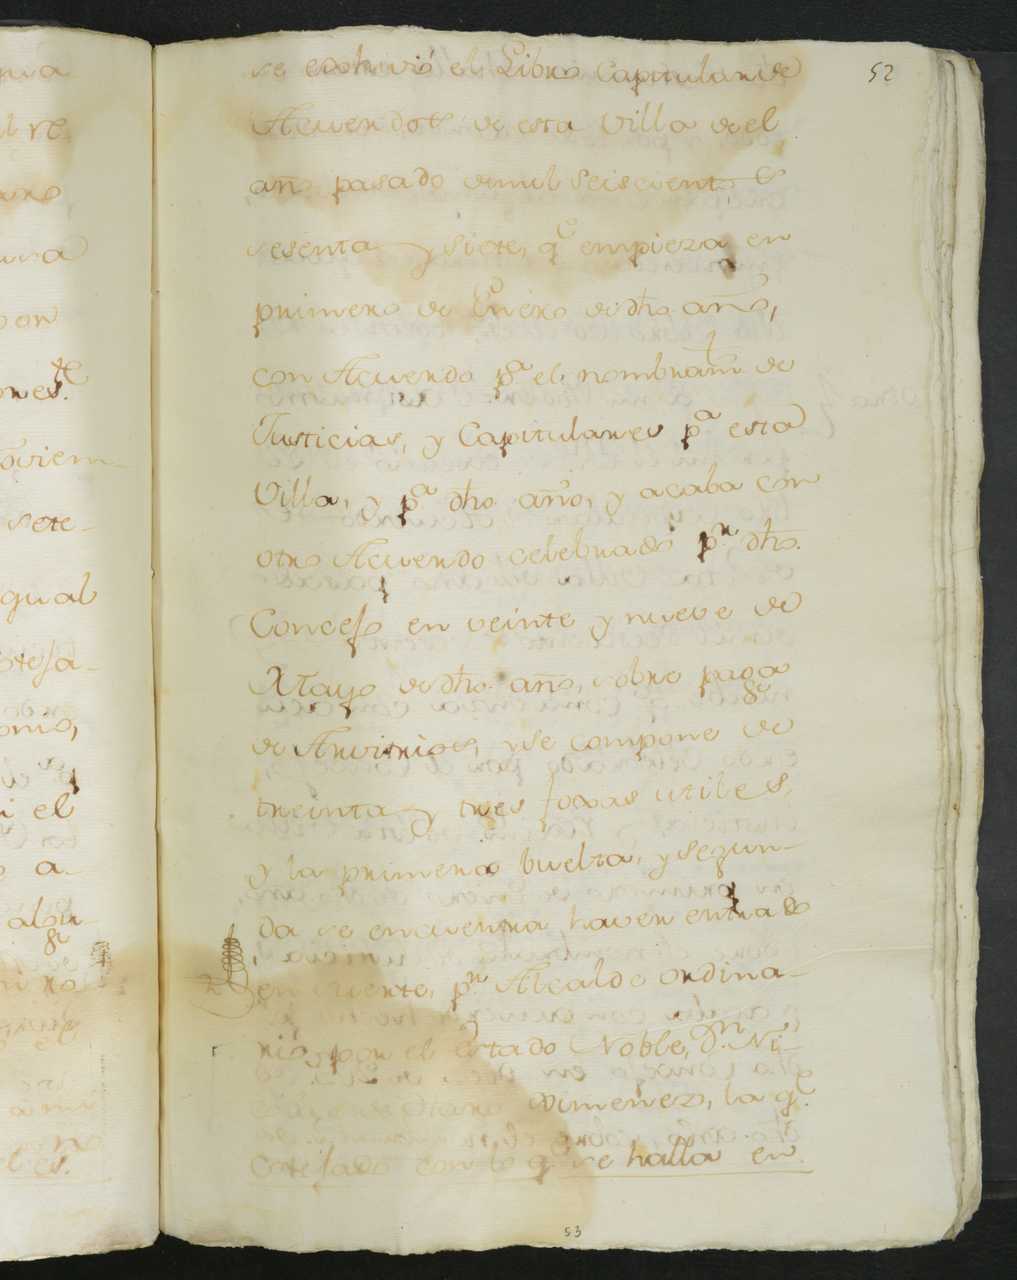 52
se exhivió el Libro Capitular de
Acuerdos de esta Villa de el
año pasado de mil seiscientos
sesenta y siete, q.e empieza en
primero de Enero de dho año,
con Acuerdo p.a el nombram.to de
Justicias, y Capitulares p.a esta
Villa, y p.a dho año, y acaba con
otro Acuerdo celebrado p.r dho.
Concejo en veinte y nueve de
Mayo de dho. año, sobre paga
de Arvitrios, y se compone de
treinta y tres foxas utiles,
y la primera buelta, y segun-
da se encuentra haver entrado
en suerte, p.r Alcalde ordina-
rio, por el estado Noble, D.n Ni-
Otano Ximenez, la q.e
cotejado con lo q.e se halla en
53
ona
el re
una
por
ones.te
sete-
qual
oteja-
onio,
i el
o a-
algu-